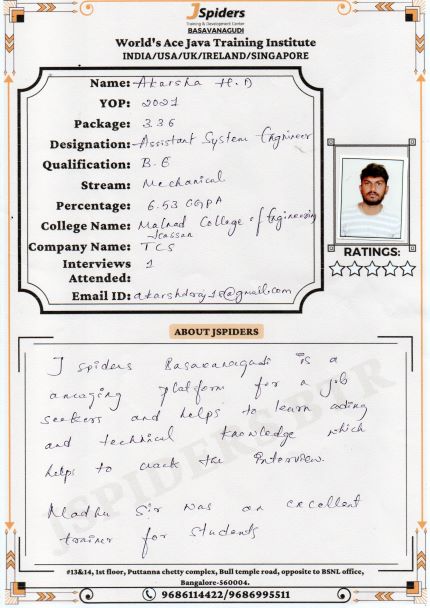 JSpiders
Training & Development Center
BASAVANAGUDI
World's Ace Java Training Institute
INDIA/USA/UK/IRELAND/SINGAPORE
Name: Akarsha H.D
YOP: 2021
Package: 3.36
Designation: Assistant System Engineer
Qualification: B.E
Stream: Mechanical
Percentage: 6.53 CGPA
College Name: Malnad College of Engineering
Hassan
Company Name: TCS
Interviews Attended: 1
Email ID: @gmail.com
RATINGS:
ABOUT JSPIDERS
J spiders Basavanagudi is a
amazing platform for a job
seekers and helps to learn coding
and technical knowledge which
helps to crack the Interview.
Madhu Sir was an excellent
trainer for students
JSPIDERS BSR
#13&14, 1st floor, Puttanna chetty complex, Bull temple road, opposite to BSNL office,
Bangalore-560004.
9686114422/9686995511